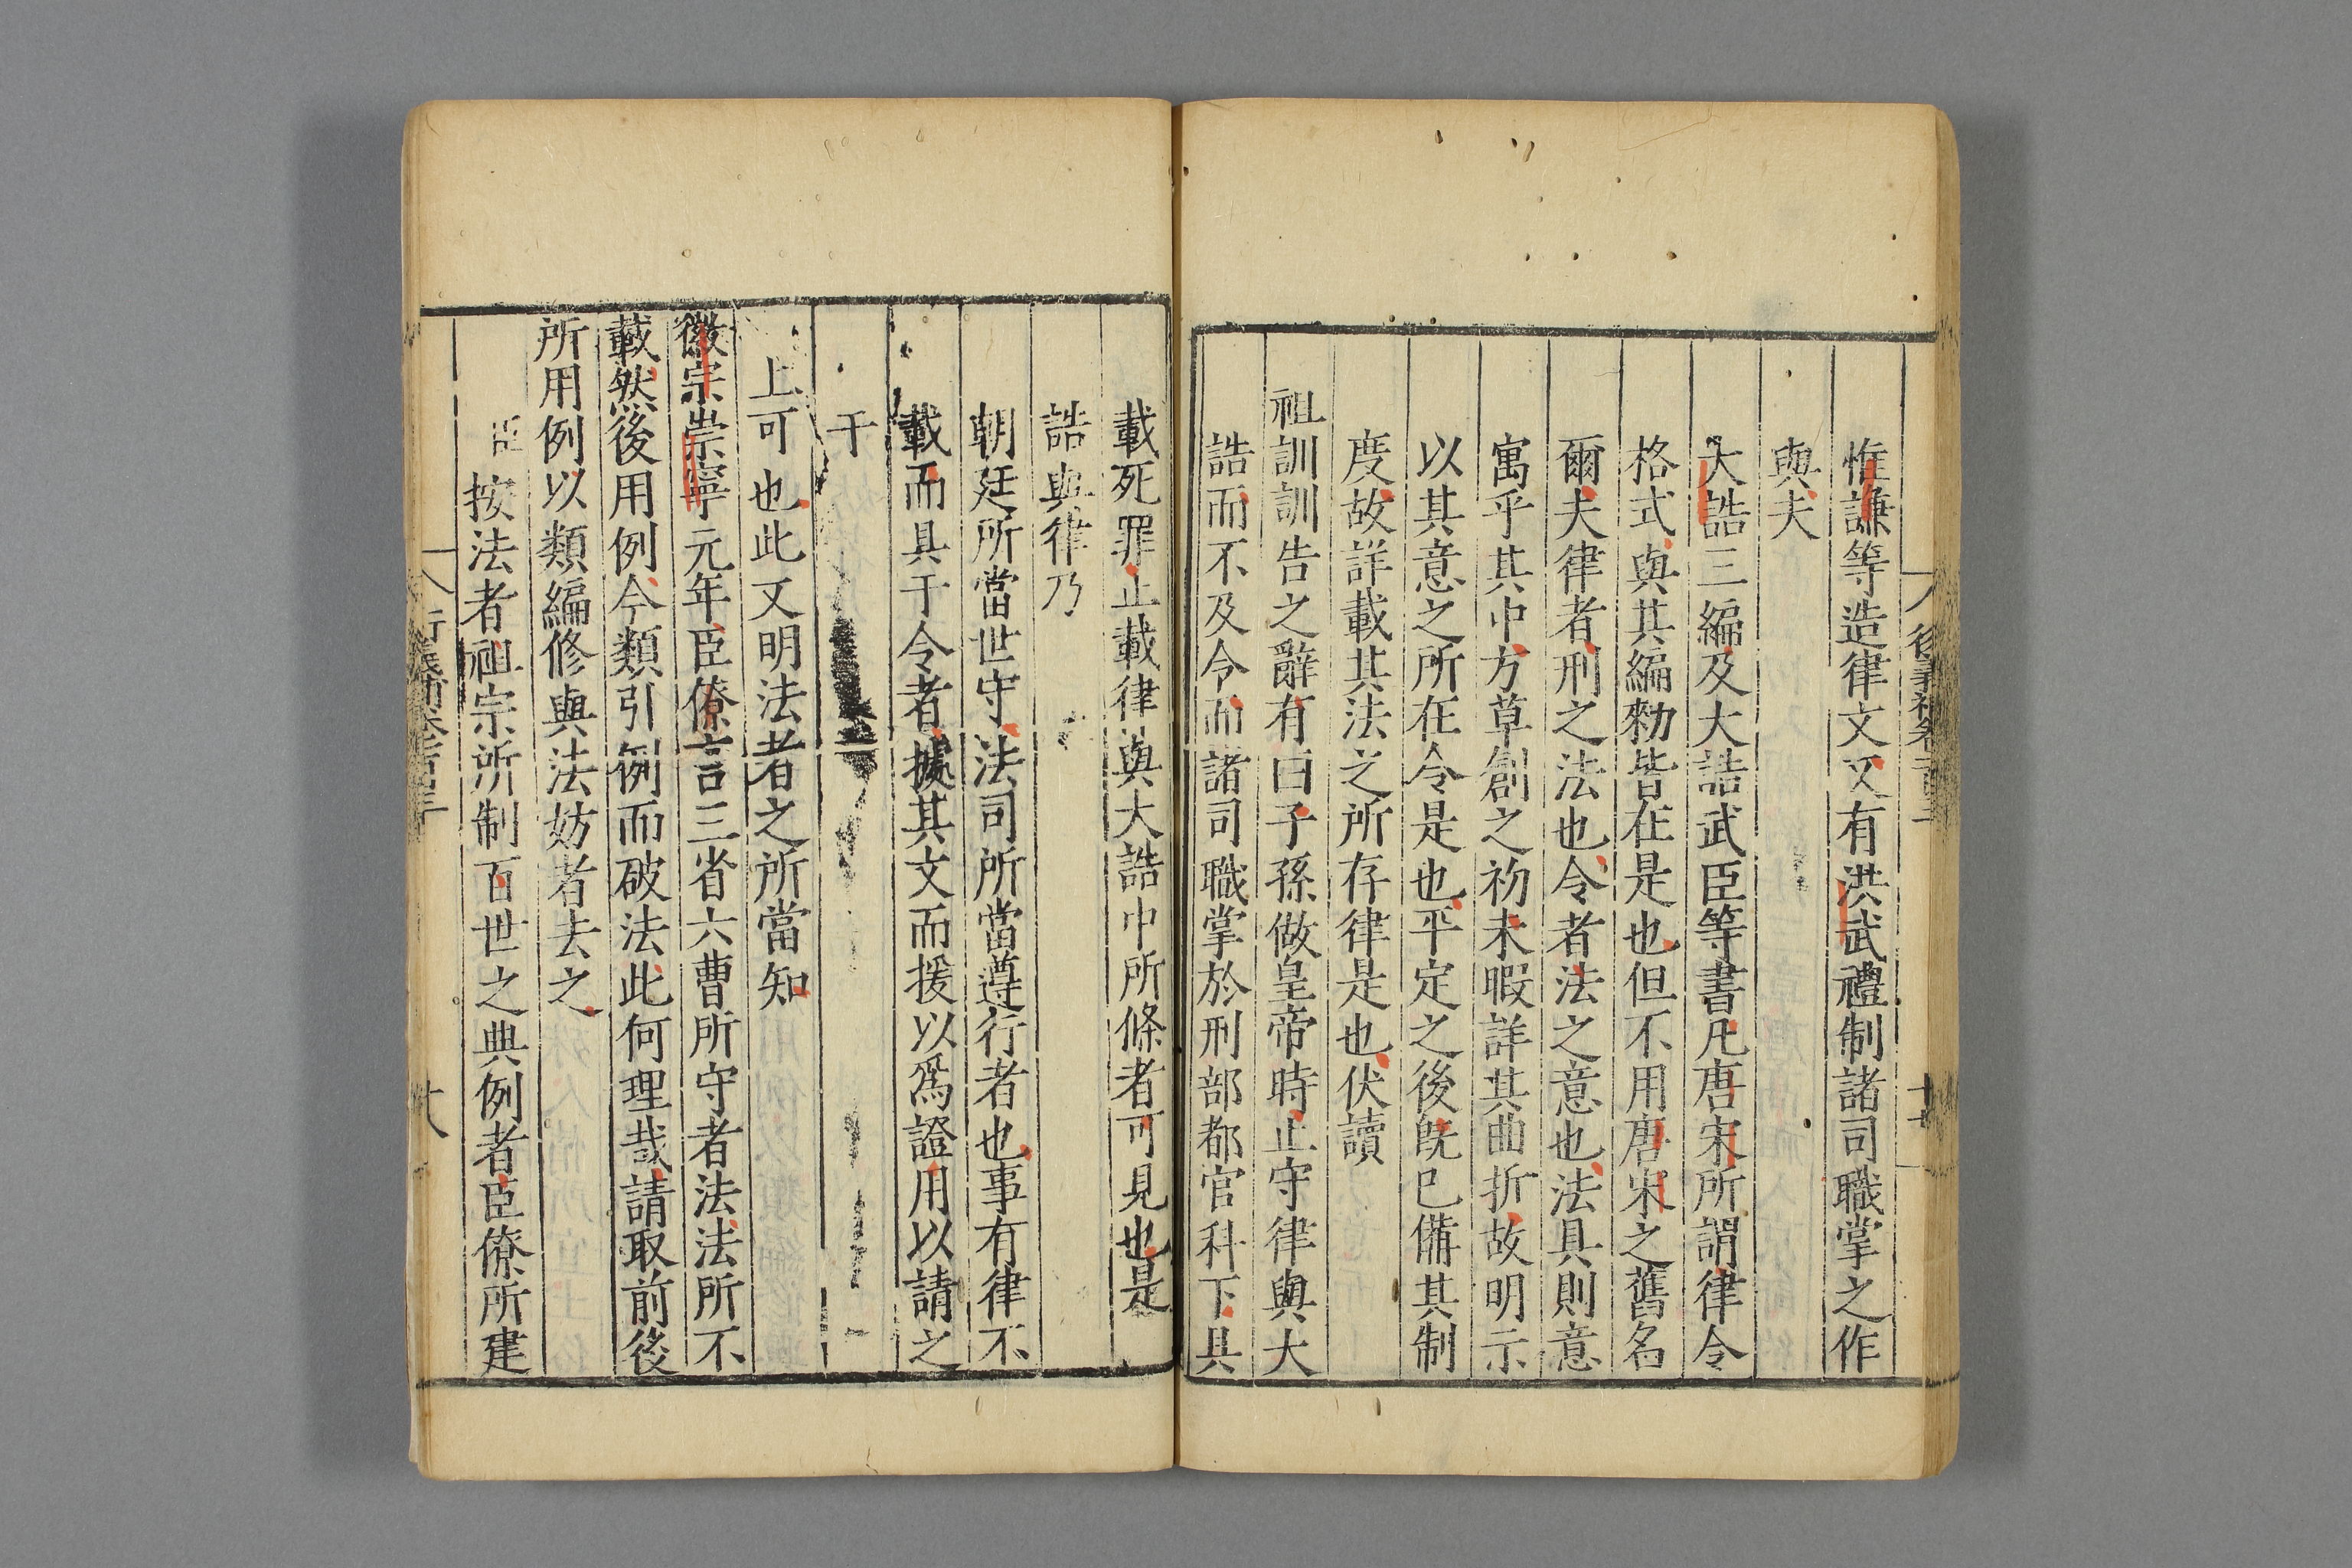 惟謙等造律文又有洪武禮制諸司職掌之作
與夫
大誥三編及大誥武臣等書凡唐宋所謂律令
格式與其編勑皆在是也但不用唐宋之舊名
爾夫律者刑之法也令者法之意也法具則意
寓乎其中方草創之初未暇詳其曲折故明示
以其意之所在令是也平定之後旣已備其制
度故詳載其法之所存律是也伏讀
祖訓訓告之辭有曰子孫做皇帝時止守律與大
誥而不及令而諸司職掌於刑部都官科下具
載死罪止載律與大誥中所條者可見也是
誥與律乃
朝廷所當世守法司所當遵行者也事有律不
載而具于令者據其文而援以爲證用以請之
于
上可也此又明法者之所當知
徽宗崇寧元年臣僚言三省六曹所守者法法所不
載然後用例今類引例而破法此何理哉請取前後
所用例以類編修與法妨者去之
臣按法者祖宗所制百世之典例者臣僚所建
十八